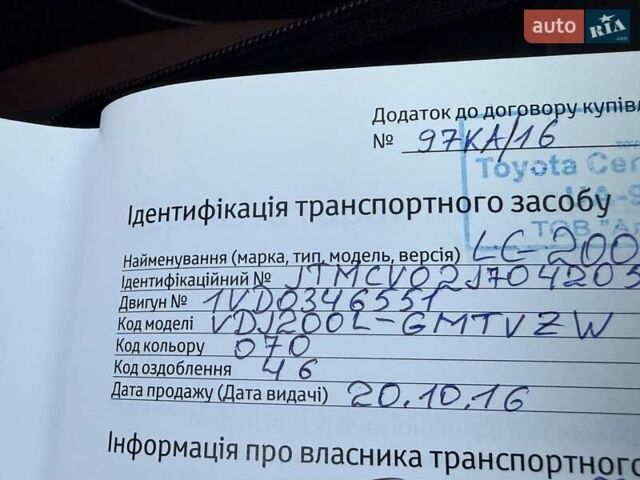 auto RIA .com
Додаток до договору купівл
№ 97КА/16
Toyota Cen
ТОВ "Ал
Ідентифікація транспортного засобу
Найменування (марка, тип, модель, версія) LC 200
Ідентифікаційний № JTMCV02J704205
Двигун № 1VD0346551
Код моделі VDJ200L-GMTVZW
Код кольору 070
Код оздоблення 46
Дата продажу (Дата видачі) 20.10.16
Інформація про власника транспортного